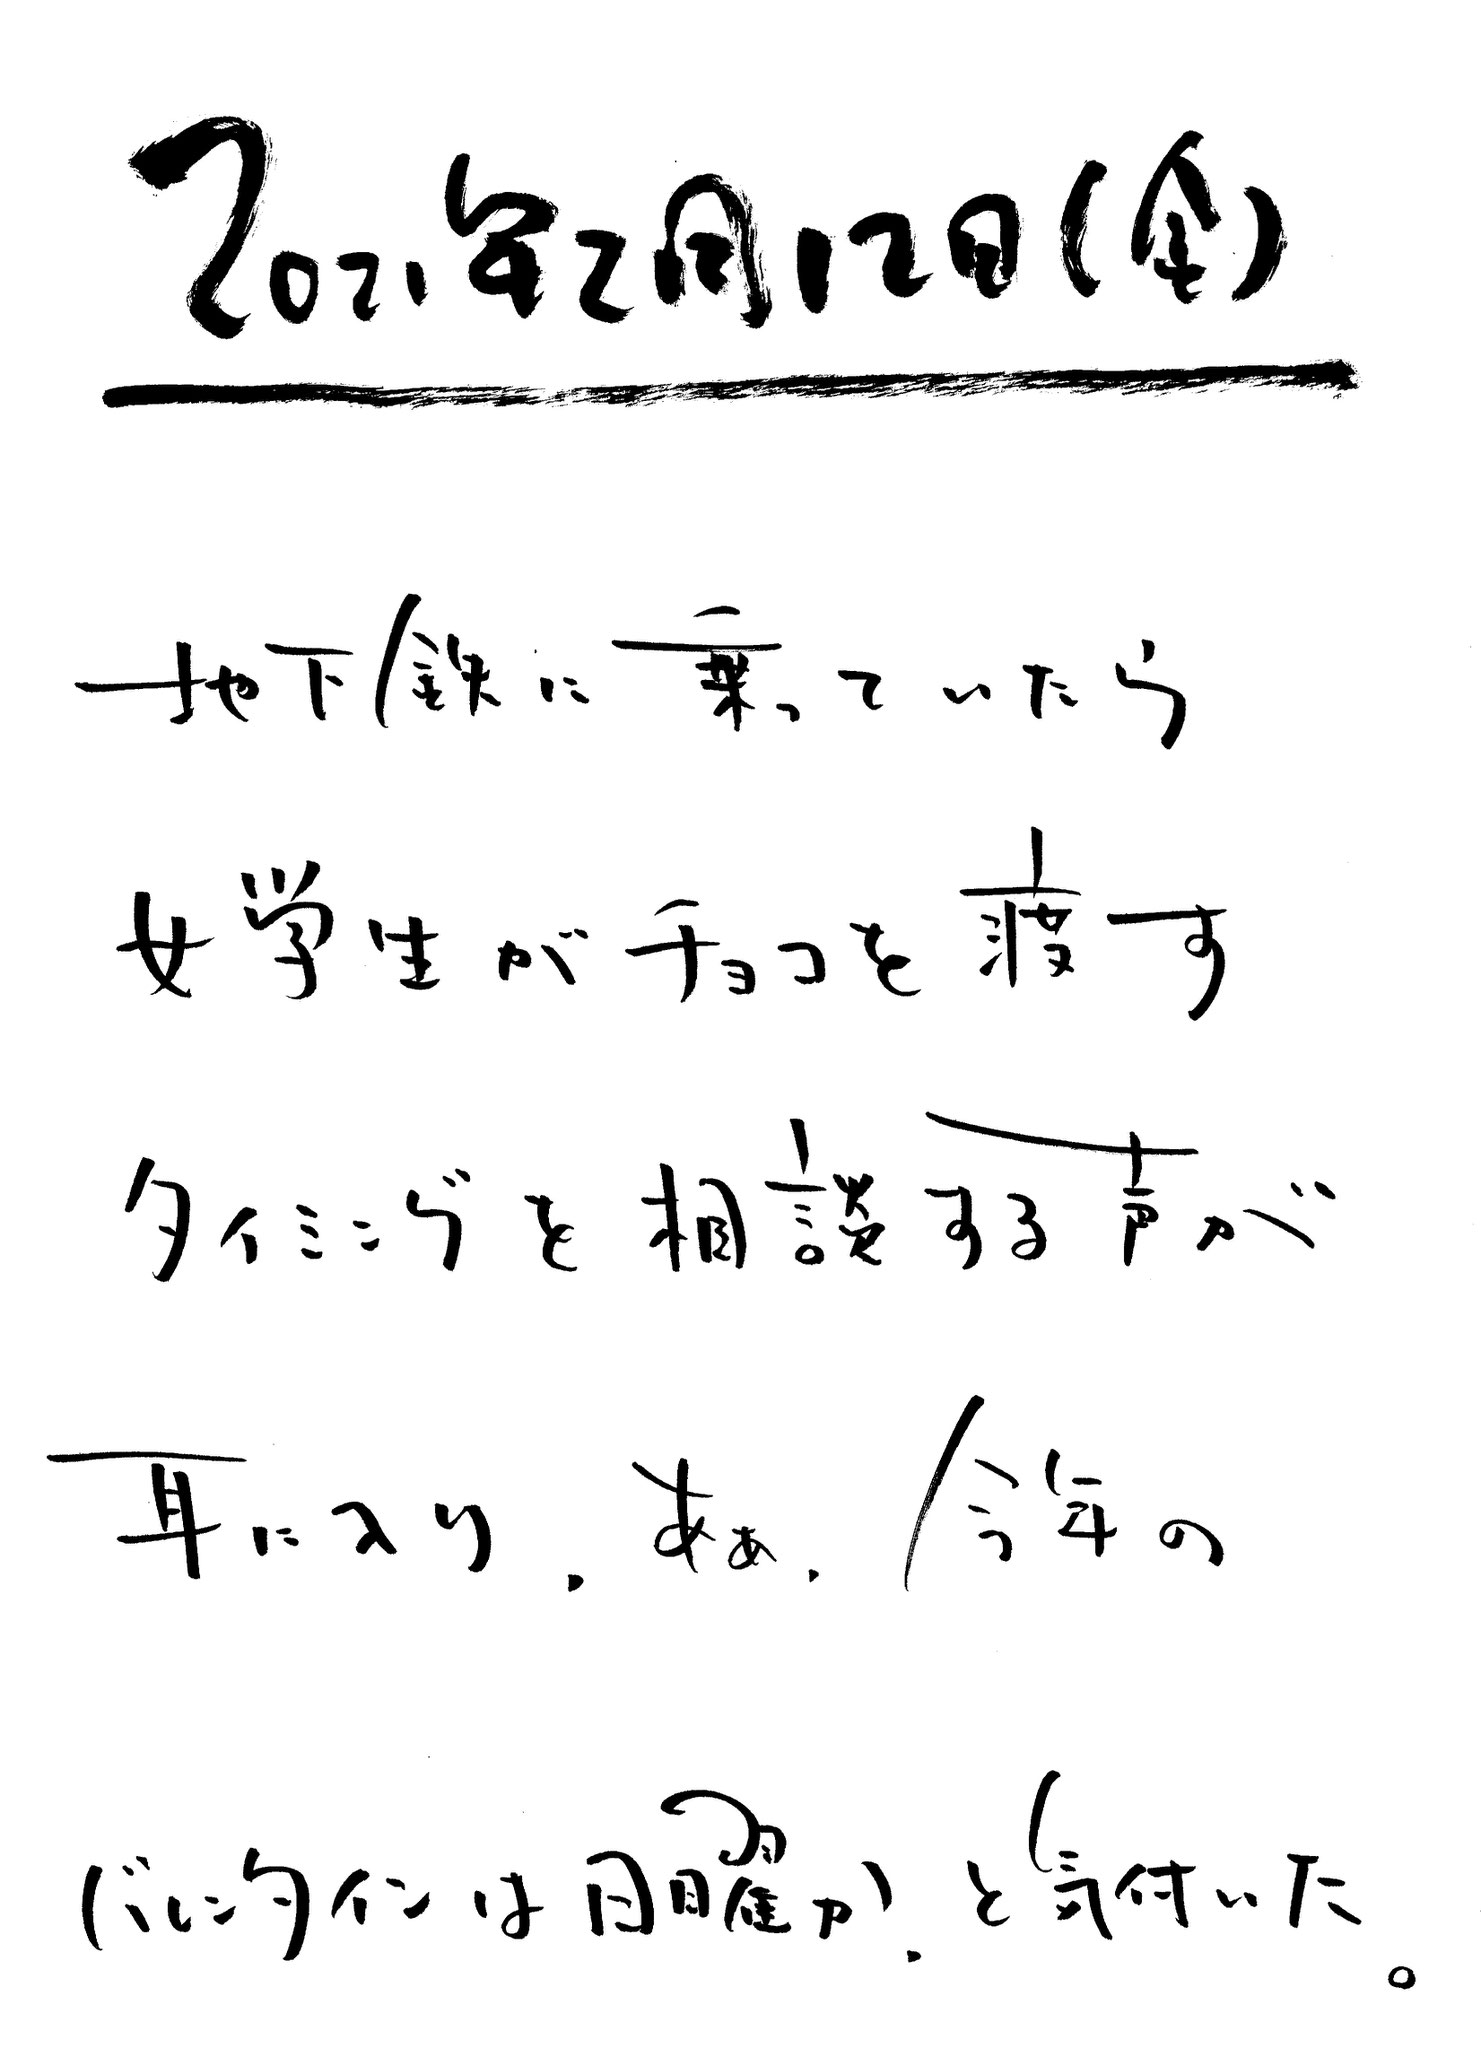 2021年2月12日(金)
地下鉄に乗っていたら
女学生がチョコを渡す
タイミングを相談する声が
耳に入り、あぁ、今年の
バレンタインは日曜か、と気付いた。